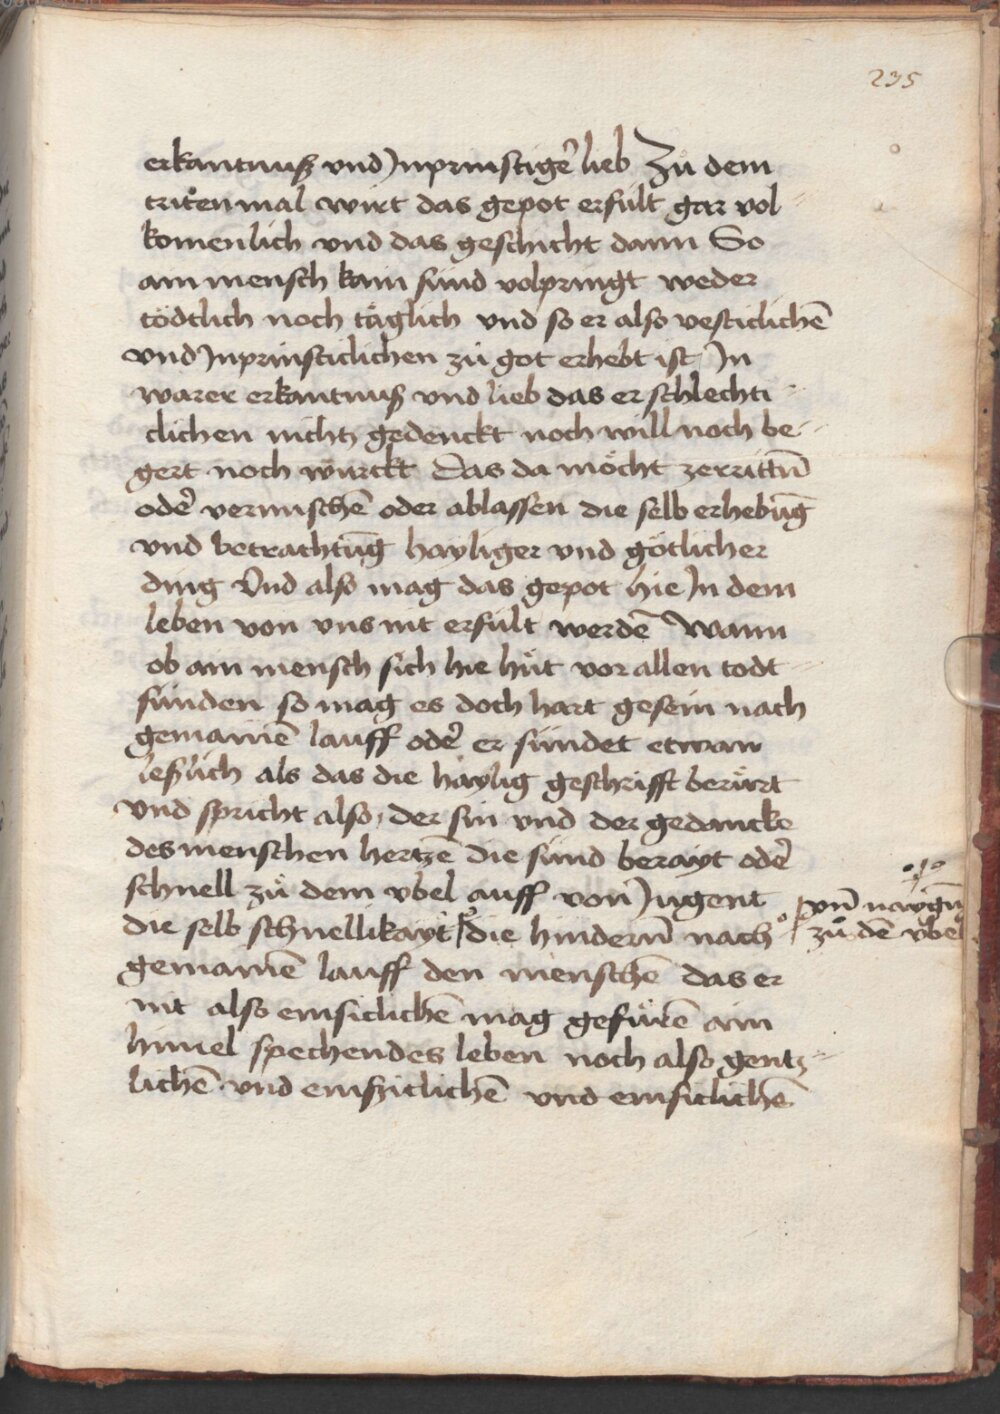 235
erkantnuß vnd Jnprinstiger̄ lieb Zů dem
triten mal wirt das gepot erfült gar vol
komenlich vnd das geschicht dann So
ain mensch kain sünd volpringt weder
tödtlich noch täglich vnd so er also vesticlichē
vnd Jnprinsticlichen zů got erhebt ist Jn
warer erkantnuß vnd lieb das er schlechti
clichen nichtz gedenckt noch will noch be-
gert noch würckt Das da möcht zerrittn̄
oder̄ vermischē oder ablassen die selb erhebūg
vnd betrachtūg hayliger vnd götlicher
ding Vnd also mag das gepot hie Jn dem
leben von vns nit erfült werdē Wann
ob ain mensch sich hie hüt vor allen todt
sünden so mag es doch hart gesein nach
gemainē lauff oder̄ er sündet etwan
leßlich als das die haylig geschrifft berürt
vnd spricht also der sin vnd der gedancke
des menschen hertzē die sind berayt oder̄
schnell zů dem vbel auff von Jugent
die selb schnellikayt die hindern̄ nach
vn̄ naygūg
zů dē vbel
gemainē lauff den menschē das er
nit also emsiclichē mag gefürē ain
himel spechendes leben noch also gentz-
lichē vnd emßiclichē vnd emsiclichē